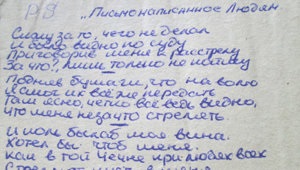 „Письмо написанное Людям.
Сижу за то, чего не делал
И было видно по суду
Приговорив меня к расстрелу
За что? Лишь только не пойму
Подняв бумаги, что на волю
Я смог их всё же передать
Там ясно, чётко всё ведь видно,
Что меня незачто стрелять
И коль была б моя вина.
Хотел бы чтоб меня.
Как в той Чечне при людях всех